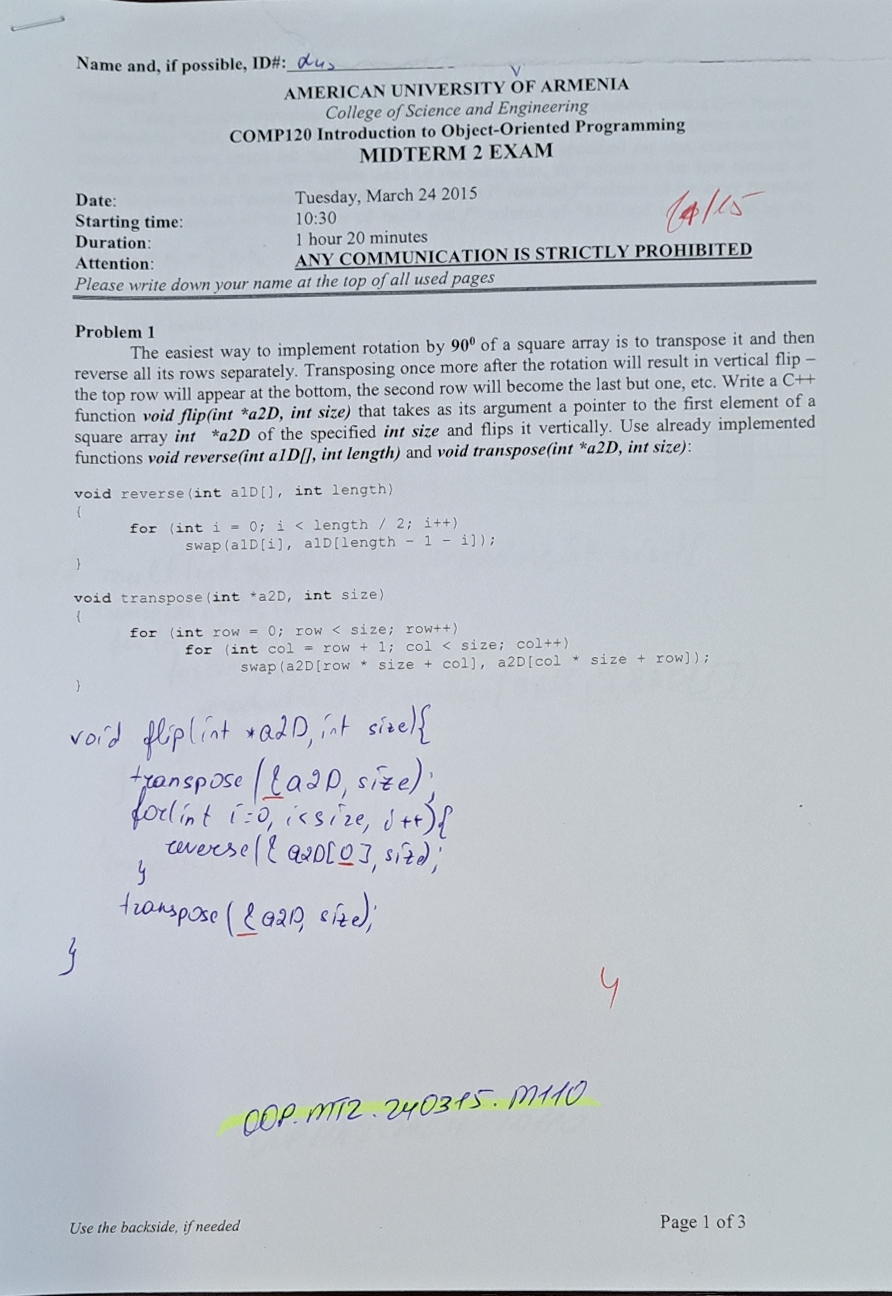 Name and, if possible, ID#:
AMERICAN UNIVERSITY OF ARMENIA
College of Science and Engineering
COMP120 Introduction to Object-Oriented Programming
MIDTERM 2 EXAM
Date: Tuesday, March 24 2015
Starting time: 10:30
Duration: 1 hour 20 minutes
Attention: ANY COMMUNICATION IS STRICTLY PROHIBITED
Please write down your name at the top of all used pages
Problem 1
The easiest way to implement rotation by 90⁰ of a square array is to transpose it and then
reverse all its rows separately. Transposing once more after the rotation will result in vertical flip –
the top row will appear at the bottom, the second row will become the last but one, etc. Write a C++
function void flip(int *a2D, int size) that takes as its argument a pointer to the first element of a
square array int *a2D of the specified int size and flips it vertically. Use already implemented
functions void reverse(int a1D[], int length) and void transpose(int *a2D, int size):
void reverse(int a1D[], int length)
{
for (int i = 0; i < length / 2; i++)
swap(a1D[i], a1D[length - 1 - i]);
}
void transpose(int *a2D, int size)
{
for (int row = 0; row < size; row++)
for (int col = row + 1; col < size; col++)
swap(a2D[row * size + col], a2D[col * size + row]);
}
void flip(int *a2D, int size){
transpose(&a2D, size);
for(int i=0, i<size, i++){
reverse(& a2D[0], size);
}
transpose(&a2D, size);
}
4
OOP.MT2.240315.M110
Use the backside, if needed
Page 1 of 3